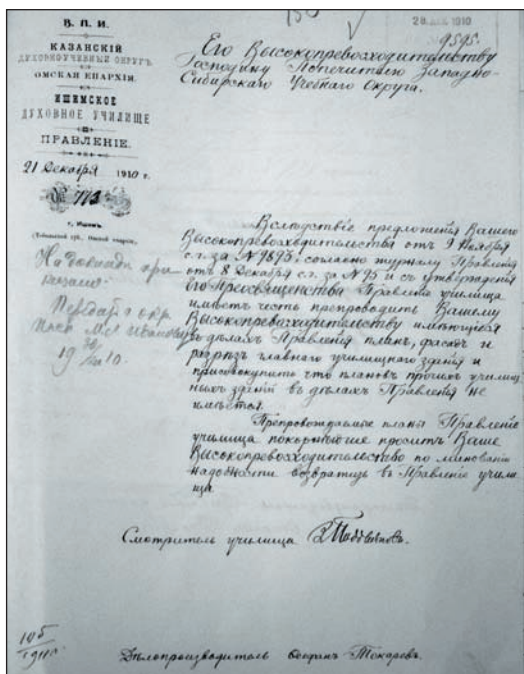 В. П. И.
КАЗАНСКІЙ
ДУХОВНОУЧЕБНЫЙ ОКРУГЪ
ОМСКАЯ ЕПАРХІЯ.
ИШИМСКОЕ
ДУХОВНОЕ УЧИЛИЩЕ
ПРАВЛЕНІЕ.
21 Декабря 1910 г.
№ 773
г. Ишимъ
(Тобольской губ., Омской епархіи).
1910
9595.
Его Высокопревосходительству
Господину Попечителю Западно-
Сибирскаго Учебнаго Округа.
Вслѣдствіе предложенія Вашего
Высокопревосходительства отъ 9 Ноября
с.г. за № 9893, согласно журналу Правленія
отъ 8 Декабря с.г. за № 95 и съ утвержденія
Его Преосвященства Правленіе училища
имѣетъ честь препроводить Вашему
Высокопревосходительству имѣющіеся
въ дѣлахъ Правленія планъ, фасадъ и
разрѣзъ главнаго училищнаго зданія и
присовокупить что плановъ прочихъ училищ
ныхъ зданій въ дѣлахъ Правленія не
имѣется.
Препровождаемые планы Правленіе
училища покорнѣйше проситъ Ваше
Высокопревосходительство по минованіи
надобности возвратить въ Правленіе учили
ща.
Передать окр.
19 10.
Смотритель училища
105
1911 г.
Дѣлопроизводитель Токаревъ.